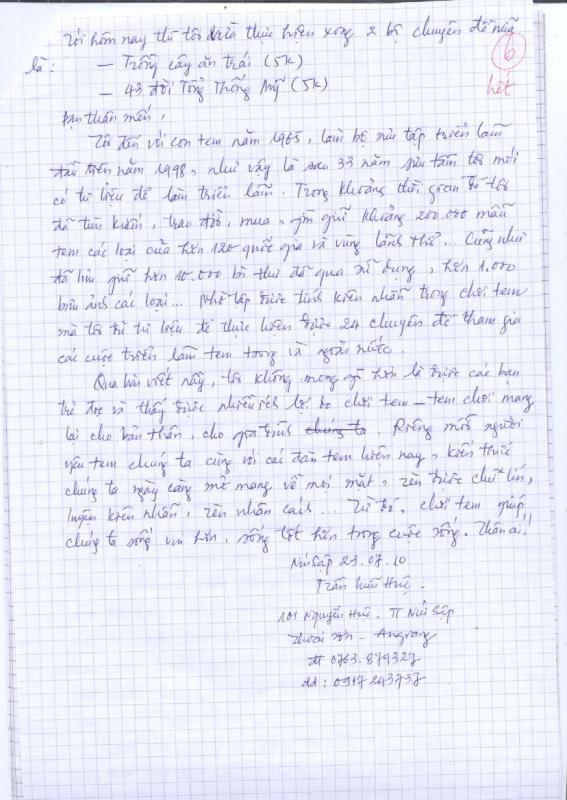 Tới hôm nay thì tôi vừa thực hiện xong 2 bộ chuyên đề nữa
là :
— Trồng cây ăn trái (5k)
— 43 đời Tổng Thống Mỹ (5k)
6
hết
Bạn thân mến,
Tôi đến với con tem năm 1965, làm bộ sưu tập triển lãm
đầu tiên năm 1998, như vậy là sau 33 năm sưu tầm tôi mới
có tư liệu để làm triển lãm. Trong khoảng thời gian đó tôi
đã tìm kiếm, trao đổi, mua, gìn giữ khoảng 200.000 mẫu
tem các loại của hơn 120 quốc gia và vùng lãnh thổ... Cũng như
đã lưu giữ hơn 10.000 bì thư đã qua sử dụng, hơn 1.000
bưu ảnh các loại... Nhờ tập được tính kiên nhẫn trong chơi tem
mà tôi có tư liệu để thực hiện được 24 chuyên đề tham gia
các cuộc triển lãm tem trong và ngoài nước.
Qua bài viết này, tôi không mong gì hơn là được các bạn
trẻ đọc và thấy được nhiều ích lợi do chơi tem – tem chơi mang
lại cho bản thân, cho gia đình chúng ta. Riêng mỗi người
yêu tem chúng ta cùng với các đàn tem hiện nay, kiến thức
chúng ta ngày càng mở mang về mọi mặt, rèn được chữ tín,
luyện kiên nhẫn, rèn nhân cách... Từ đó, chơi tem giúp
chúng ta sống vui hơn, sống tốt hơn trong cuộc sống. Thân ái!
Núi Sập 23.07.10
Trần Hữu Huệ.
101 Nguyễn Huệ. TT Núi Sập
Thoại Sơn – Angiang
đt 0763.879327
dđ : 0917243737